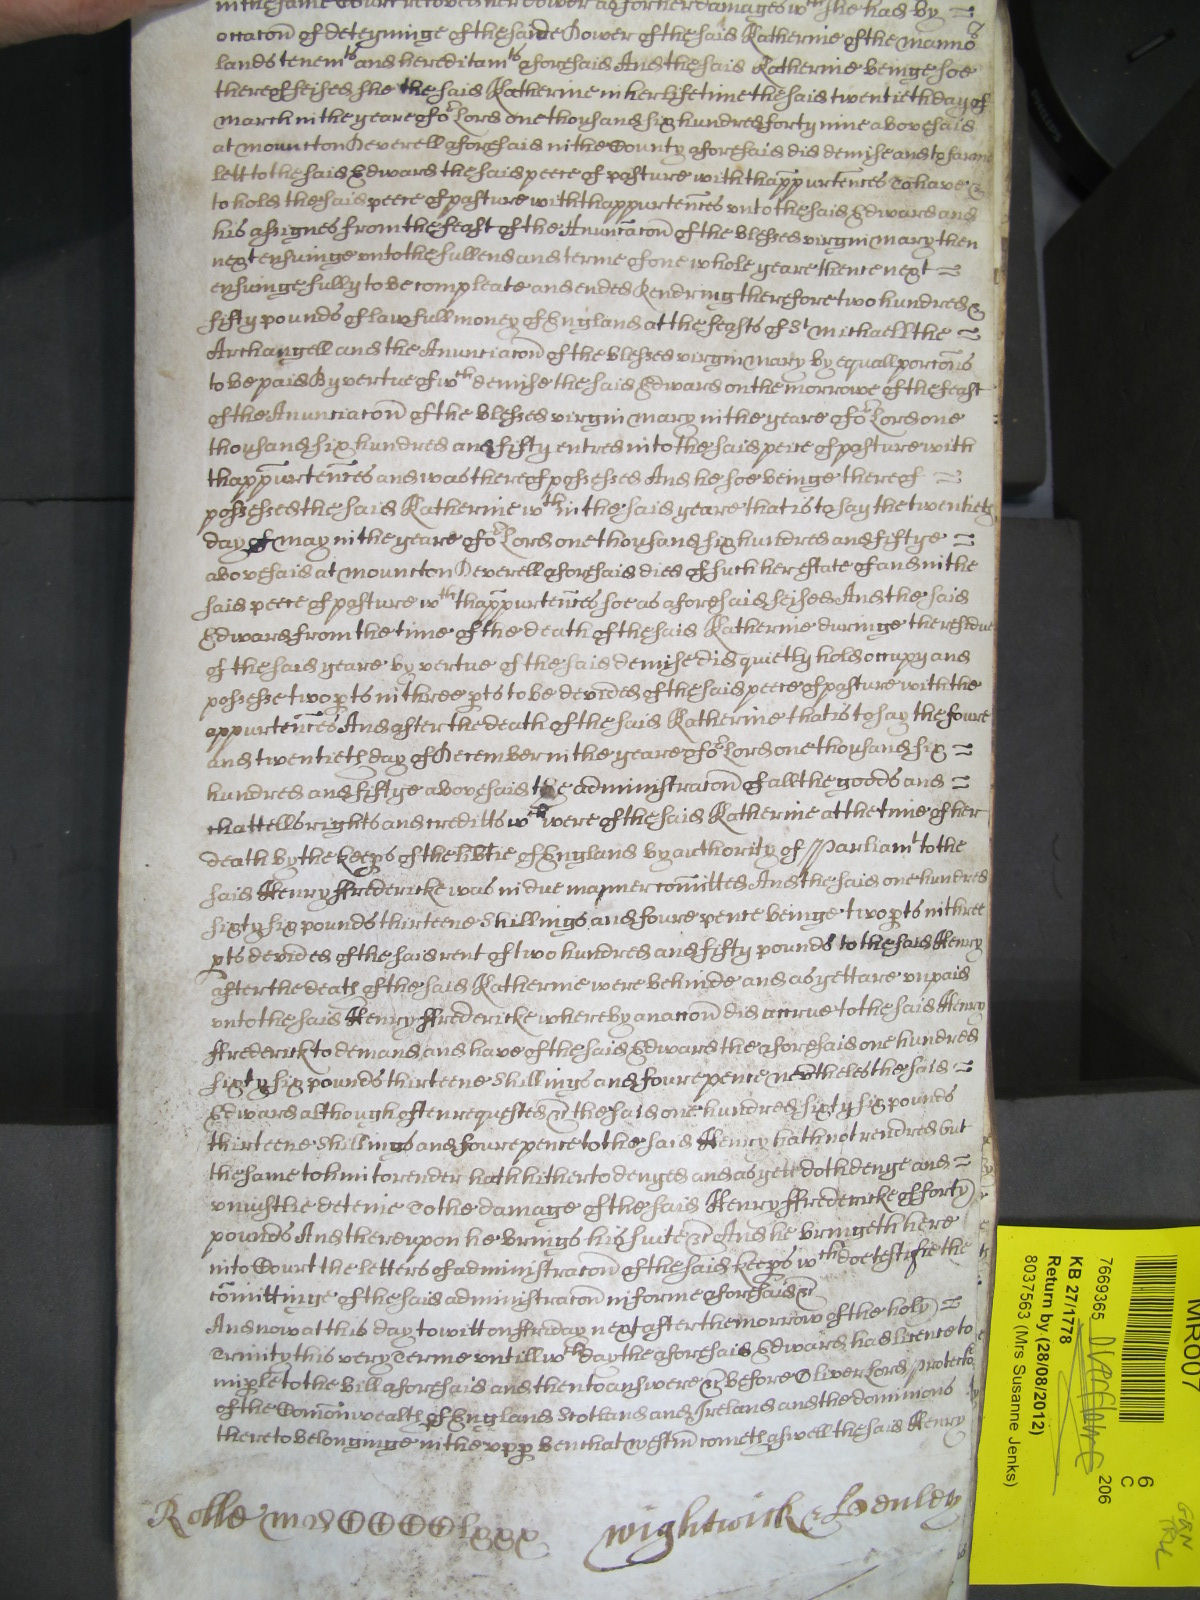 in the same Court recovered her Dower aforesaid her damages wch she had by
occacon of deteyninge of the saide Dower of the said Katherine of the manno
lands tenemts and hereditamts aforesaid And the said Katherine beinge soe
thereof seised she the said Katherine in her life time the said twentieth day of
March in the yeare of or Lord one thousand six hundred forty nine abovesaid
at Mouncton Deverell aforesaid in the County aforesaid did demise and to farme
lett to the said Edward the said peece of pasture with thappurtences To have &
to hold the said peece of pasture with thappurtences unto the said Edward and
his assignes from the feast of the Anunciacon of the blessed virgin mary then
next ensuinge unto the full end and terme of one whole yeare thence next
ensuinge fully to be compleate and ended Rendring therefore two hundred &
fifty pounds of lawfull money of England at the feasts of St Michaell the
Archangell and the Anunciacon of the blessed virgin mary by equall porcons
to be paid By vertue of wch demise the said Edward on the morrowe of the feast
of the Anunciacon of the blessed virgin mary in the yeare of or Lord one
thousand six hundred and fifty entred into the said peece of pasture with
thappurtences and was thereof possessed And he soe beinge thereof
possessed the said Katherine wthin the said yeare that is to say the twentieth
day of may in the yeare of or Lord one thousand six hundred and fiftye
abovesaid at Mouncton Deverell aforesaid died of such her estate of and in the
said peece of pasture wth thappurtences soe as aforesaid seised And the said
Edward from the time of the death of the said Katherine duringe the residue
of the said yeare by vertue of the said demise did quietly hold occupy and
possesse two pts in three pts to be devided of the said peece of pasture with the
appurtences And after the death of the said Katherine that is to say the foure
and twentieth day of December in the yeare of or Lord one thousand six
hundred and fiftye abovesaid the administracon of all the goods and
chattells rights and creditts wch were of the said Katherine at the time of her
death by the keeps of the libtie of England by authority of Parliamt to the
said Henry ffredericke was in due manner comitted And the said one hundred
sixty six pounds thirteene shillings and foure pence beinge two pts in three
pts devided of the said rent of two hundred and fifty pounds to the said Henry
after the death of the said Katherine were behinde and as yett are unpaid
unto the said Henry ffredericke whereby an accon did accrue to the said Henry
ffrederick to demand and have of the said Edward the aforesaid one hundred
sixty six pounds thirteene shillings and foure pence nevtheles the said
Edward although often requested &c the said one hundred sixty six pounds
thirteene shillings and foure pence to the said Henry hath not rendred but
the same to him to render hath hitherto denyed and as yett doth denye and
uniustlie deteine To the damage of the said Henry ffredericke of forty
pounds And thereupon he brings his suite &c And he bringeth here
into Court the letters of administracon of the said keeps wch doe testifie the
comittinge of the said administracon in forme aforesaid &c
And now at this day to witt on ffriday next after the morrow of the holy
Trinity this very Terme untill wch day the aforesaid Edward had licence to
imple to the bill aforesaid and then to answere &c before Oliver Lord Protector
of the Comonwealth of England Scotland and Ireland and the dominions
thereto belonginge in the upp bench at Westm cometh aswell the said Henry
Rolle
Wightwick
MR007
7669365
KB 27/1778
Return by (28/08/2012)
8037563 (Mrs Susanne Jenks)
6
C
206